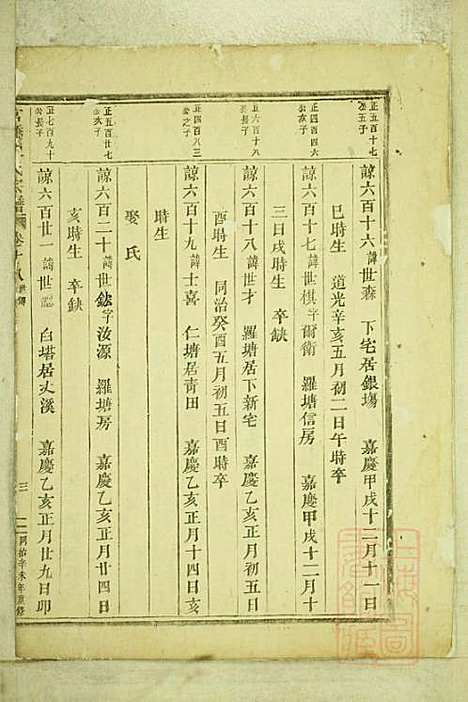 正五百十七
公五子
諒六百十六諱世森 下宅居銀塲 嘉慶甲戌十二月十一日
巳時生 道光辛亥五月初二日午時卒
正四百四六
公次子
諒六百十七諱世棋字爾衛 羅塘信房 嘉慶甲戌十二月十
三日戌時生 卒缺
正六百十八
公長子
諒六百十八諱世才 羅塘居下新宅 嘉慶乙亥正月初五日
酉時生 同治癸酉五月初五日酉時卒
正四百八三
公之子
諒六百十九諱士喜 仁塘居青田 嘉慶乙亥正月十四日亥
時生
娶氏
正五百廿七
公次子
諒六百二十諱世鈜字汝源 羅塘房 嘉慶乙亥正月廿四日
亥時生 卒缺
正七百九十
公長子
諒六百廿一諱世 白塔居丈溪 嘉慶乙亥正月廿九日卯
氏宗譜 卷十八
三
同治辛未年重修